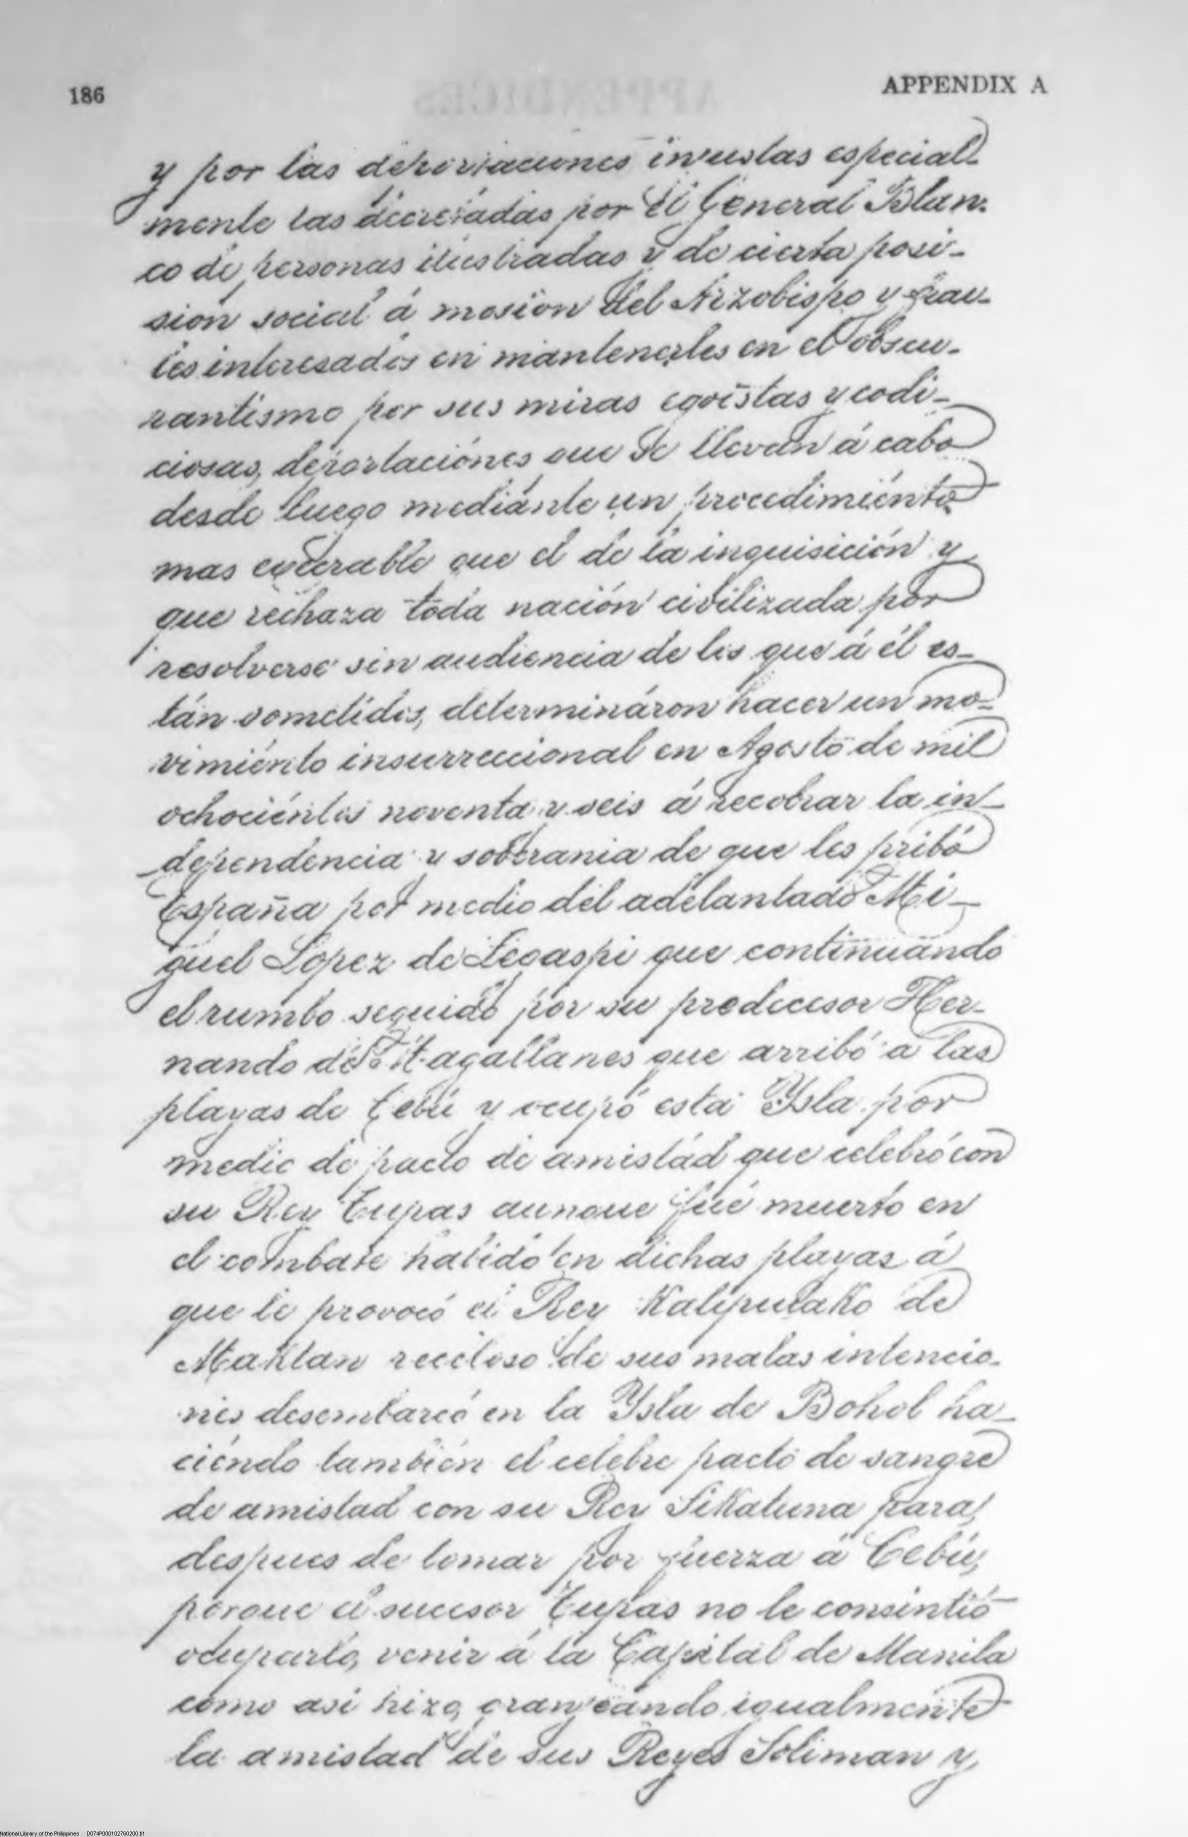 186
APPENDIX A
y por las deportaciones injustas especial-
mente las decretadas por el General Blan-
co de personas ilustradas y de cierta posi-
sion social á mosion del Arzobispo y frai-
les interesados en mantenerles en el obscu-
rantismo por sus miras egoistas y codi-
ciosas, deportaciónes que se llevan á cabo
desde luego mediánte un procedimiénto
mas execrable que el de la inquisición y
que rechaza toda nación civilizada por
resolverse sin audiencia de los que á él es-
tán sometidos, determináron hacer un mo-
vimiénto insurreccional en Agosto de mil
ochociéntos noventa y seis á recobrar la in-
dependencia y soberania de que les pribó
España por medio del adelantado Mi-
guel Lopez de Legaspi que continuando
el rumbo seguido por su predecesor Her-
nando de Magallanes que arribó a las
playas de Cebú y ocupó esta Ysla por
medio de pacto de amistád que celebró con
su Rey Tupas aunque fué muerto en
el combate habido en dichas playas á
que le provocó el Rey Kalipulako de
Maktan receloso de sus malas intencio-
nes desembarcó en la Ysla de Bohol ha-
ciéndo también el celebre pacto de sangre
de amistad con su Rey Sikatuna para
despues de tomar por fuerza á Cebú,
porque el sucesor Tupas no le consintió
ocuparlo, venir á la Capital de Manila
como asi hizo, granjeándo igualmente
la amistad de sus Reyes Soliman y
National Library of the Philippines